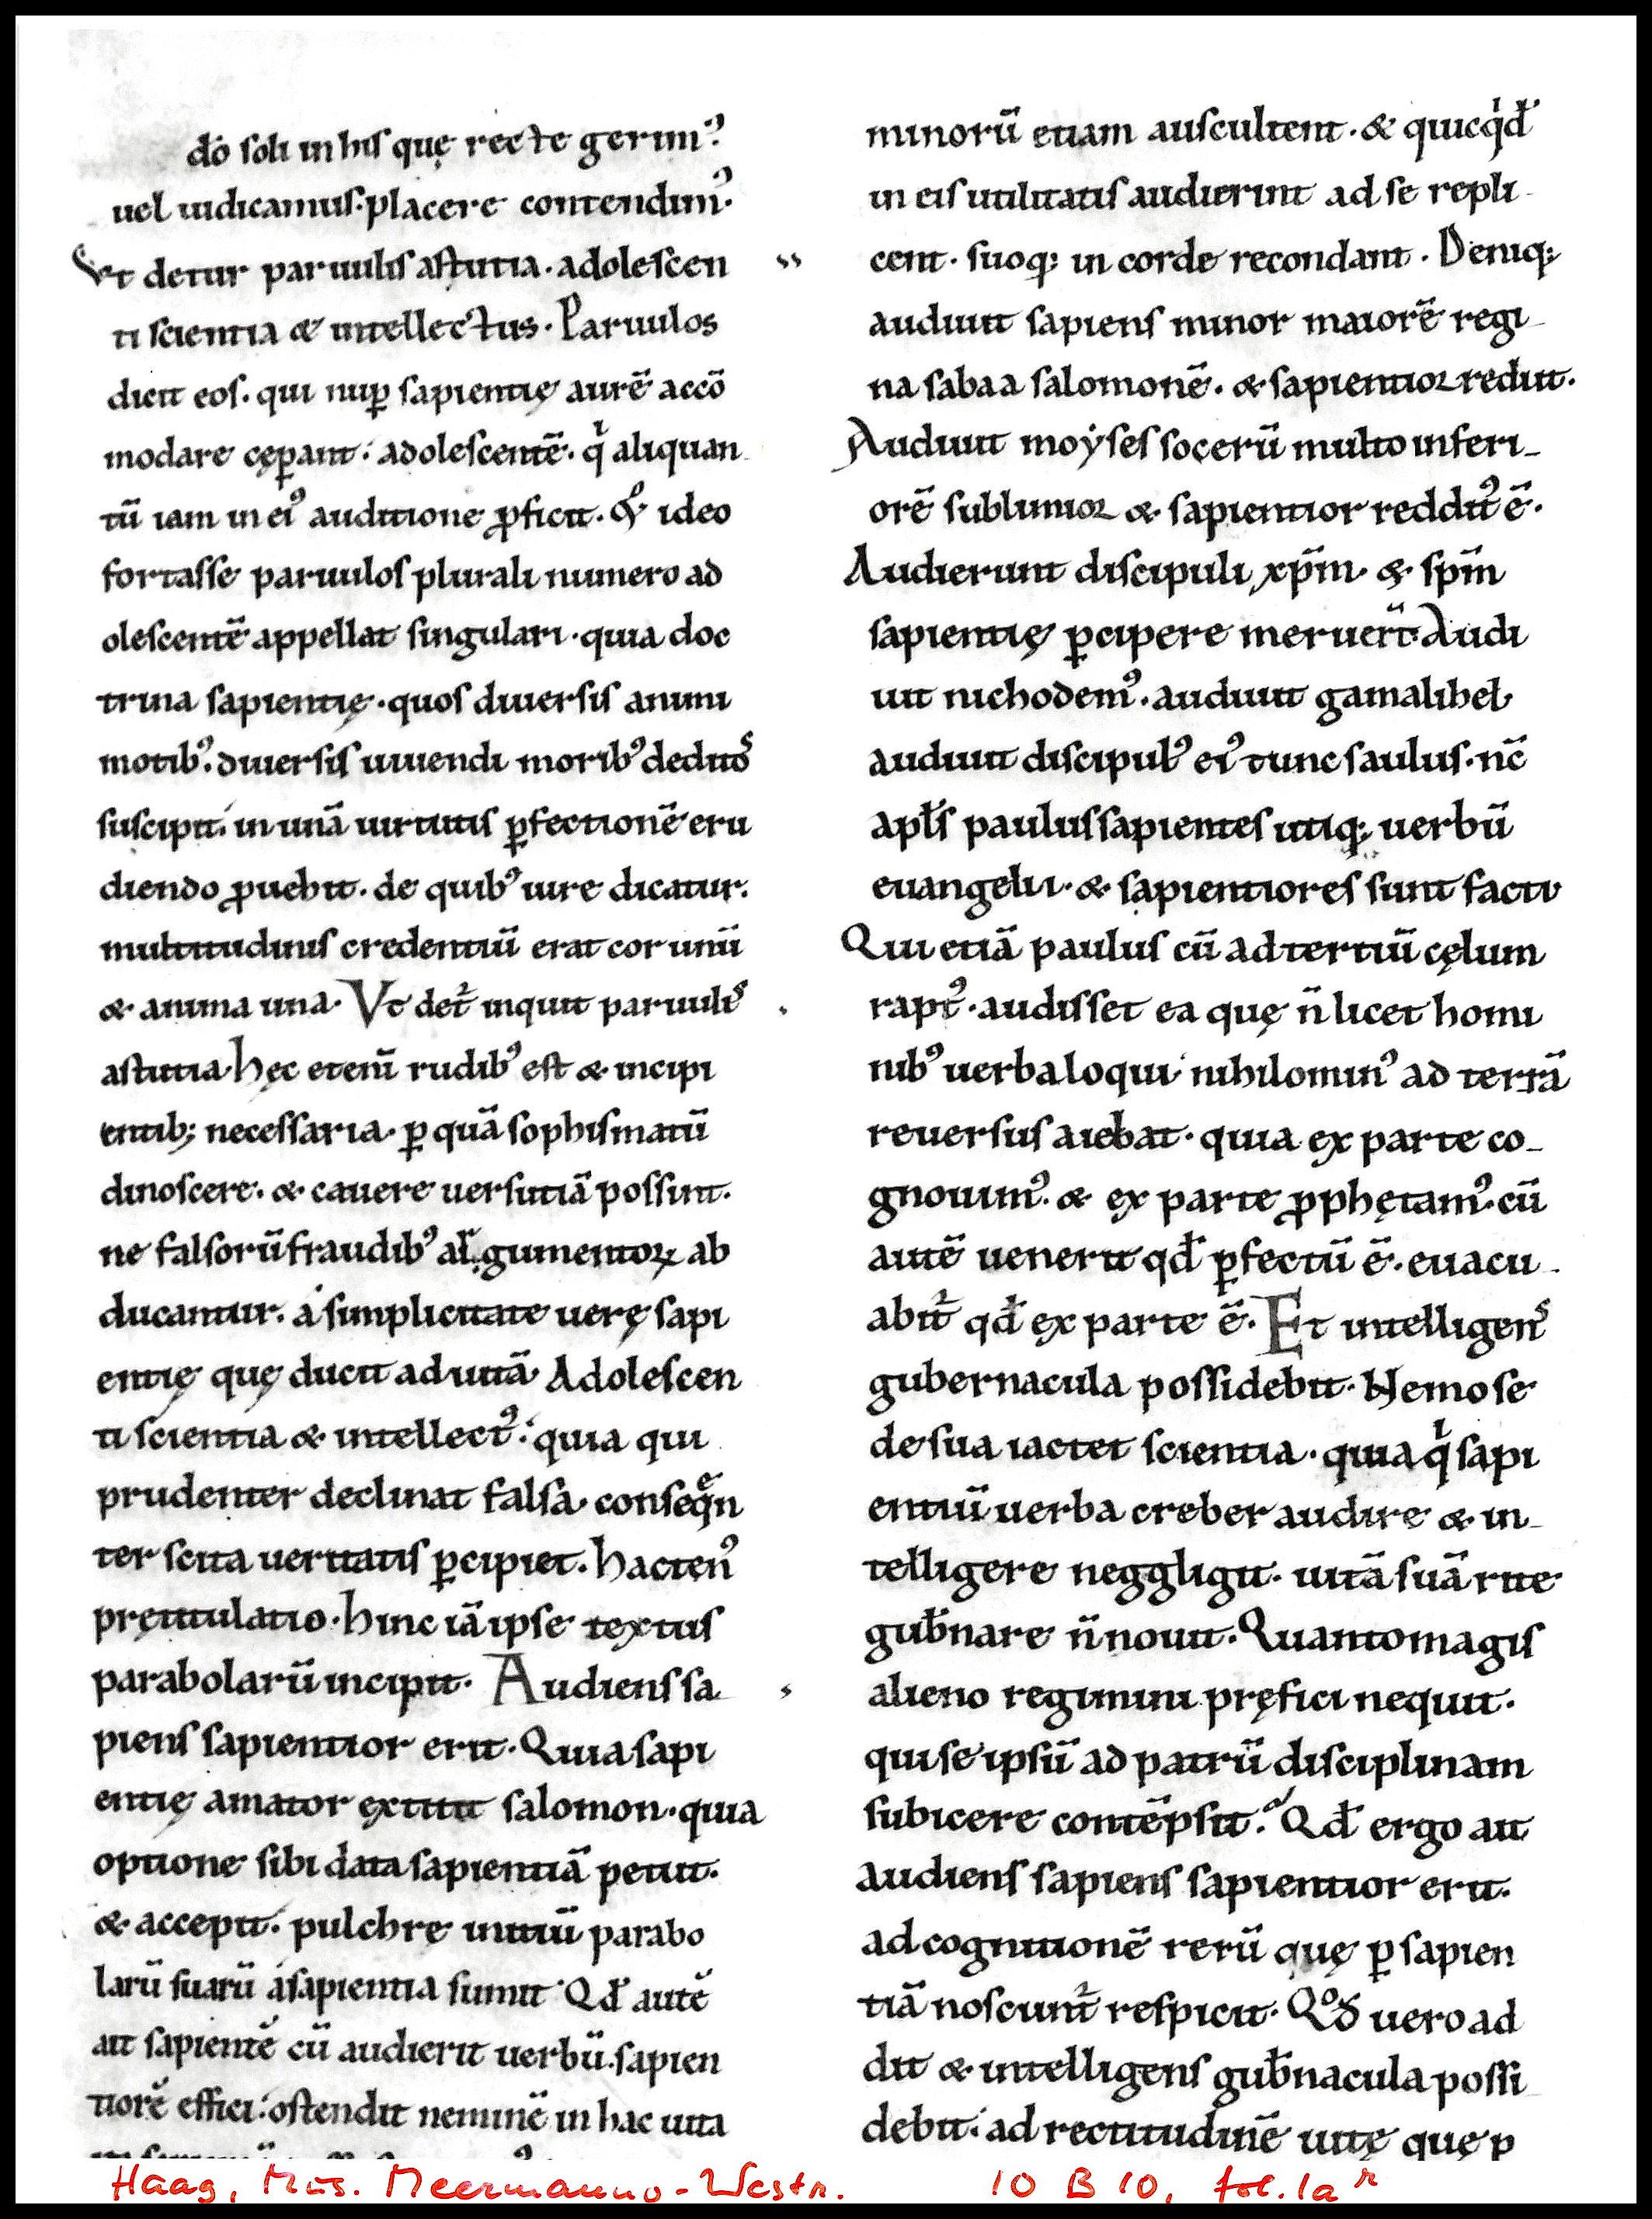 dō soli in his quę recte gerim᾽
uel iudicamus· placere contendim᾽·
Vt detur paruulis astutia· adolescen
ti scientia & intellectus· Paruulos
dicit eos· qui nuꝑ sapientię aurē accō
modare cęꝑant· adolescentē· qͥ aliquan
tū iam in ei᾽ auditione ꝓficit· & ideo
fortasse paruulos plurali numero ad
olescentē appellat singulari· quia doc
trina sapientię· quos diuersis animi
motib᾽· diuersis uiuendi morib᾽ deditos
suscipit· in unā uirtutis ꝑfectionē eru
diendo ꝓuehit· de quib᾽ iure dicatur·
multitudinis credentiū erat cor unū
& anima una· Vt det᷑ inquit paruulis
astutia· hęc etenī rudib᾽ est & incipi
entib; necessaria· ꝑ quā sophismatū
dinoscere· & cauere uersutiā possint·
ne falsorū fraudib᾽ argumentoꝝ ab
ducantur· á simplicitate uerę sapi
entię quę ducit ad uitā· Adolescen
ti scientia & intellect᾽· quia qui
prudenter declinat falsa· conseqēn
ter scita ueritatis ꝑcipiet· hacten᾽
prętitulatio· hinc iā ipse textus
parabolarū incipit· Audiens sa
piens sapientior erit· Quia sapi
entię amator extitit salomon· quia
optione sibi data sapientiā petiit·
& accepit· pulchre initiū parabo
larū suarū á sapientia sumit· Qđ autē
ait sapientē cū audierit uerbū· sapien
tiorē effici· ostendit neminē in hac uita
minorū etiam auscultent· & quicqͥđ
in eis utilitatis audierint ad se repli
cent· suoq; in corde recondant· Deniq;
audiuit sapiens minor maiorē regi
na saba a salomonē· & sapientior rediit·
Audiuit moẏses socerū multo inferi
orē sublimior & sapientior reddit᾽ ē·
Audierunt discipuli xp̄m· & sp̄m
sapientię ꝑcipere meruer̄t· Audi
uit nichodem᾽· audiuit gamalihel·
audiuit discipul᾽ ei᾽ tunc saulus· nc̄
apl̄s paulus sapientes utiq; uerbū
euangelii· & sapientiores sunt facti·
Qui etiā paulus cū ad tertiū cęlum
rapt᾽· audisset ea quę n̄ licet homi
nib᾽ uerba loqui· nihilomin᾽ ad terrā
reuersus aiebat· quia ex parte co
gnouim᾽· & ex parte ꝓphętam᾽· cū
autē uenerit qđ ꝑfectū ē· euacu
abit᷑ qđ ex parte ē· Et intelligens
gubernacula possidebit· Nemo se
de sua iactet scientia· quia qͥ sapi
entiū uerba creber audire & in
telligere neggligit· uitā suā rite
gub̄nare n̄ nouit· Quanto magis
alieno regimini pręfici nequit·
qui se ipsū ad patrū disciplinam
subicere contēpsit· Qđ ergo ait
audiens sapiens sapientior erit·
ad cognitionē rerū quę ꝑ sapien
tiā noscunt᷑ respicit· Qͦd uero ad
dit & intelligens gub̄nacula possi
debit· ad rectitudinē uitę quę p
Haag, Mus. Meermanno-Westr. 10 B 10, fol. 1aʳ